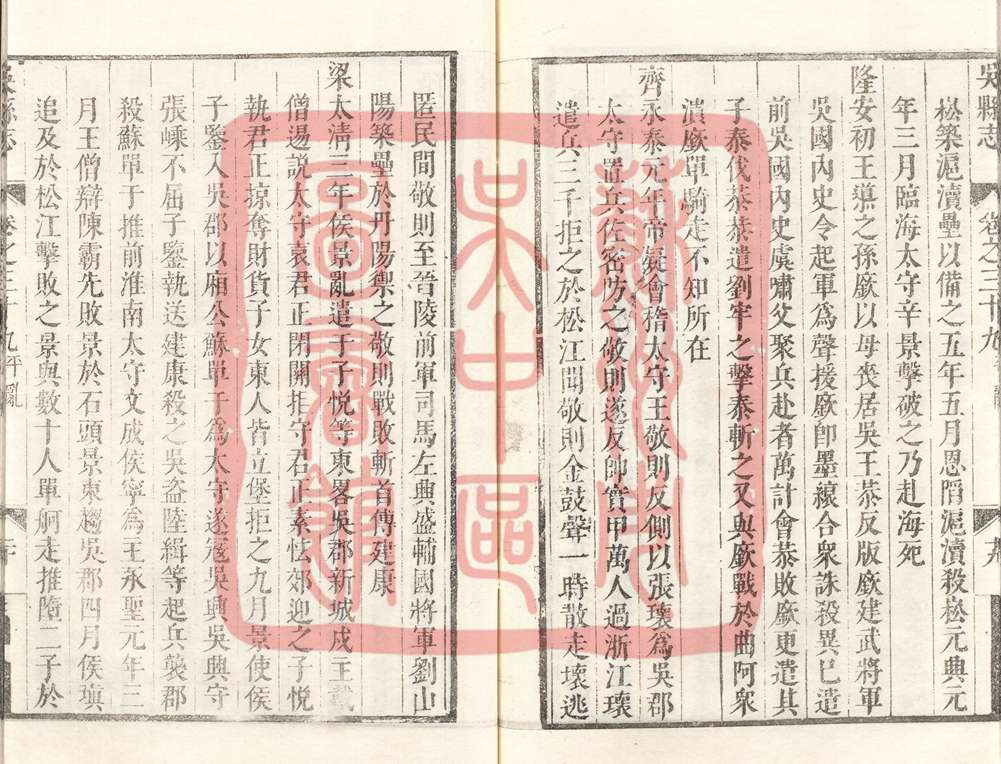 吳縣志 卷之三十九
崧築滬瀆壘以備之五年五月恩陷滬瀆殺崧元典元
年三月臨海太守辛景擊破之乃赴海死
隆安初王導之孫廞以母喪居吳王恭反版廞建武將軍
吳國內史令起軍爲聲援廞卽墨縗合衆誅殺異已遣
前吳國內史虞嘯父聚兵赴者萬計會恭敗廞更遣其
子泰伐恭恭遣劉牢之擊泰斬之又與廞戰於曲阿衆
潰廞單騎走不知所在
齊永泰元年帝疑會稽太守王敬則反側以張瓌爲吳郡
太守置兵佐密防之敬則遂反帥實甲萬人過浙江瓌
遣兵三千拒之於松江聞敬則金鼓聲一時散走瓌逃
匿民間敬則至晉陵前軍司馬左典盛輔國將軍劉山
陽築壘於丹陽禦之敬則戰敗斬首傳建康
梁太淸三年侯景亂遣于子悅等東畧吳郡新城戍主戴
僧逷說太守袁君正閉關拒守君正素怯郊迎之子悅
執君正掠奪財貨子女東人皆立堡拒之九月景使侯
子鑒入吳郡以廂公蘇單于爲太守遂寇吳興吳興守
張嵊不屈子鑒執送建康殺之吳盜陸緝等起兵襲郡
殺蘇單于推前淮南太守文成侯寧爲主承聖元年三
月王僧辯陳霸先敗景於石頭景東趨吳郡四月侯瑱
追及於松江擊敗之景與數十人單舸走推墮二子於
吳縣志 卷之三十九 平亂 二十
蘇州
吳中區
圖書館